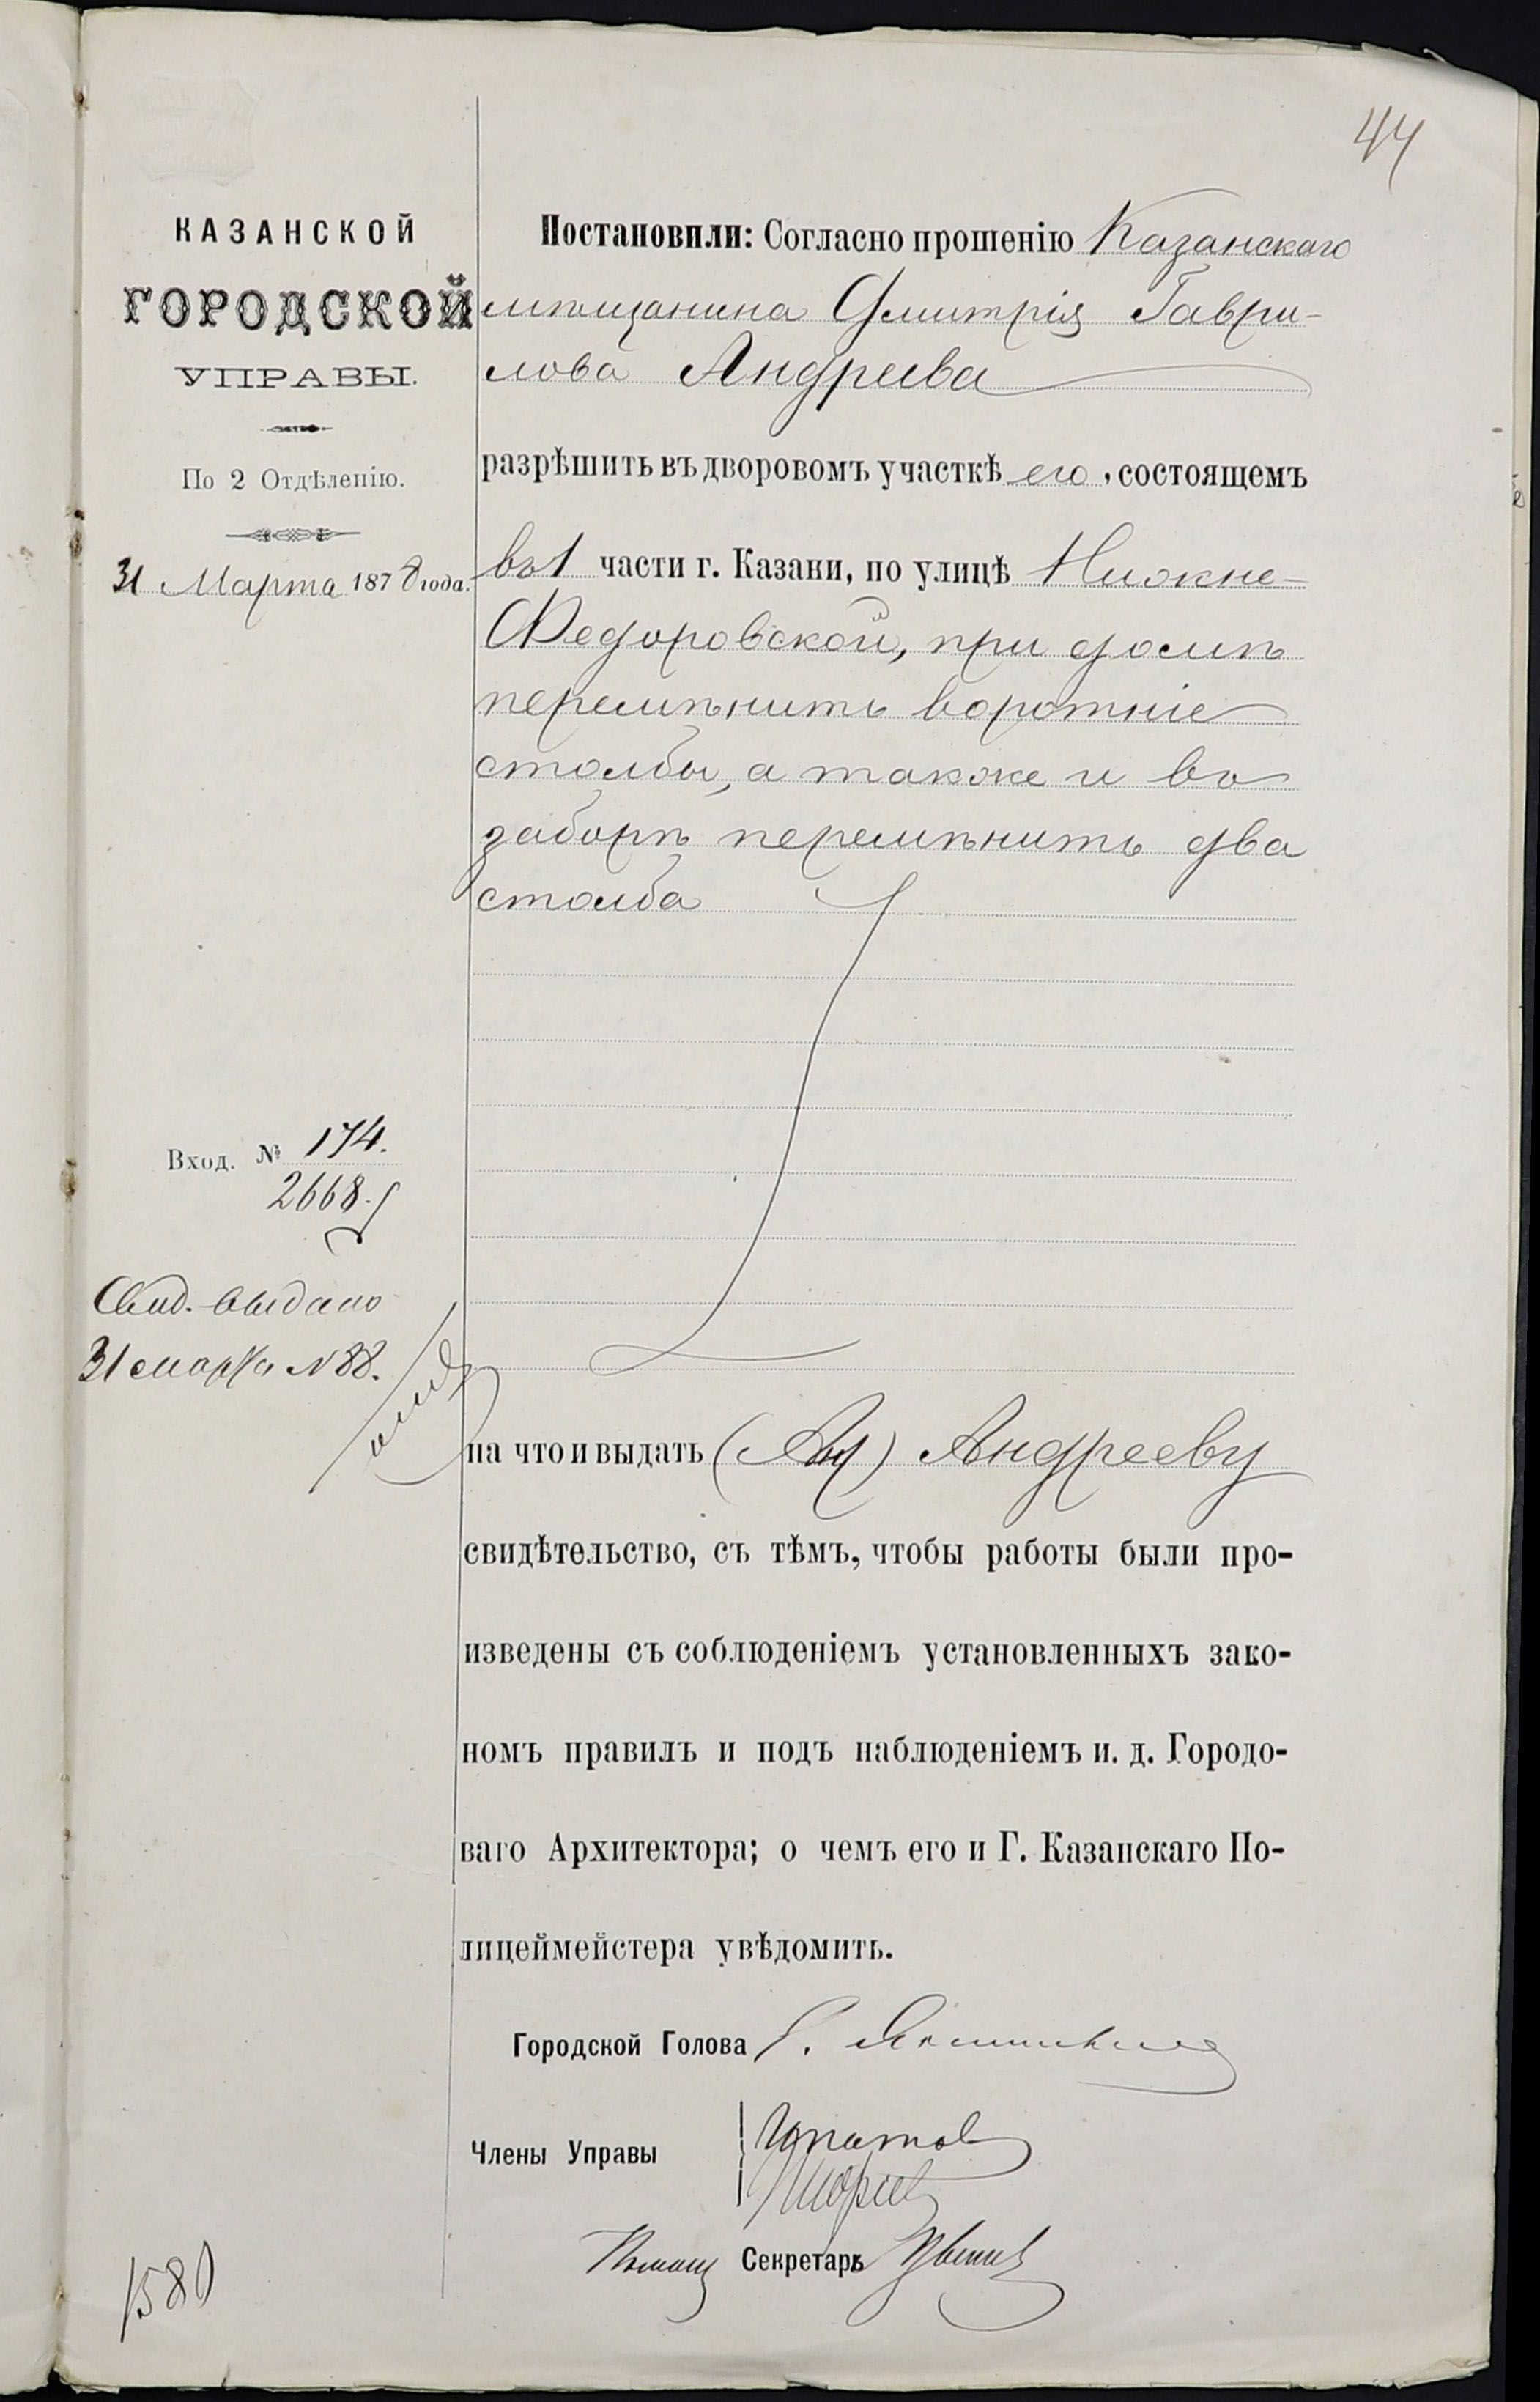 44
КАЗАНСКОЙ
ГОРОДСКОЙ
УПРАВЫ.
По 2 Отдѣленію.
31 Марта 1878 года.
Постановили: Согласно прошенію Казанскаго
мѣщанина Дмитрія Гаври-
лова Андреева
разрѣшить въ дворовомъ участкѣ его, состоящемъ
въ 1 части г. Казани, по улицѣ Нижне-
Федоровской, при домѣ
перемѣнить воротніе
столбы, а также и въ
заборѣ перемѣнить два
столба
Вход. № 174.
2668.
Свид. выдано
31 марта N 88.
на что и выдать (Ан) Андрееву
свидѣтельство, съ тѣмъ, чтобы работы были про-
изведены съ соблюденіемъ установленныхъ зако-
номъ правилъ и подъ наблюденіемъ и. д. Городо-
ваго Архитектора; о чемъ его и Г. Казанскаго По-
лицеймейстера увѣдомить.
Городской Голова
Члены Управы Ипатов
Помощ Секретаря
1580